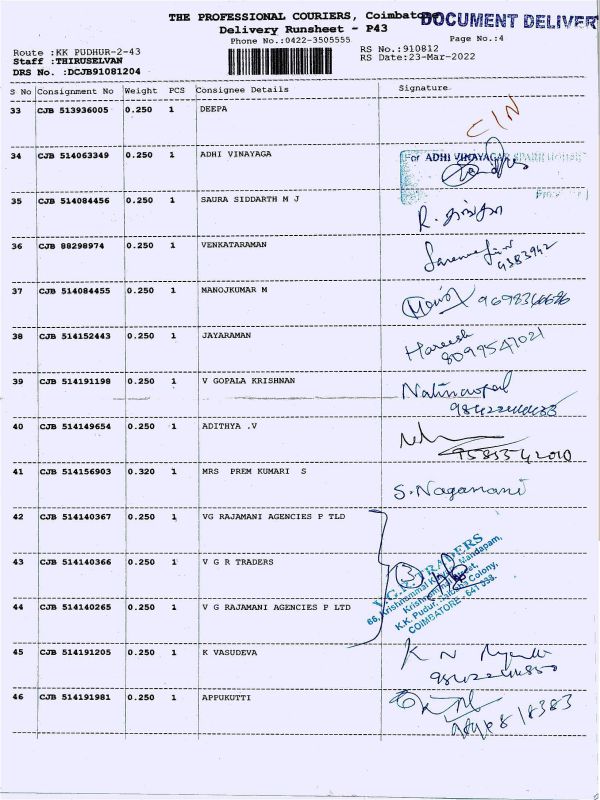 THE PROFESSIONAL COURIERS, Coimbatore
DOCUMENT DELIVER
Delivery Runsheet - P43
Phone No.:0422-3505555
Page No.:4
Route :KK PUDHUR-2-43
RS No.:910812
Staff :THIRUSELVAN
RS Date:23-Mar-2022
DRS No. :DCJB91081204
S No Consignment No Weight PCS Consignee Details Signature
33 CJB 513936005 0.250 1 DEEPA
C/N
34 CJB 514063349 0.250 1 ADHI VINAYAGA
For ADHI VINAYAGA SPARE HOUSE
35 CJB 514084456 0.250 1 SAURA SIDDARTH M J
36 CJB 88298974 0.250 1 VENKATARAMAN
9383942
37 CJB 514084455 0.250 1 MANOJKUMAR M
38 CJB 514152443 0.250 1 JAYARAMAN
Hareesh
8099547021
39 CJB 514191198 0.250 1 V GOPALA KRISHNAN
40 CJB 514149654 0.250 1 ADITHYA .V
9585542010
41 CJB 514156903 0.320 1 MRS PREM KUMARI S
S. Naganani
42 CJB 514140367 0.250 1 VG RAJAMANI AGENCIES P TLD
43 CJB 514140366 0.250 1 V G R TRADERS
3
V.G.R. TRADERS
K.K. Pudur, Saibaba Colony,
COIMBATORE - 641 038.
44 CJB 514140265 0.250 1 V G RAJAMANI AGENCIES P LTD
45 CJB 514191205 0.250 1 K VASUDEVA
46 CJB 514191981 0.250 1 APPUKUTTI